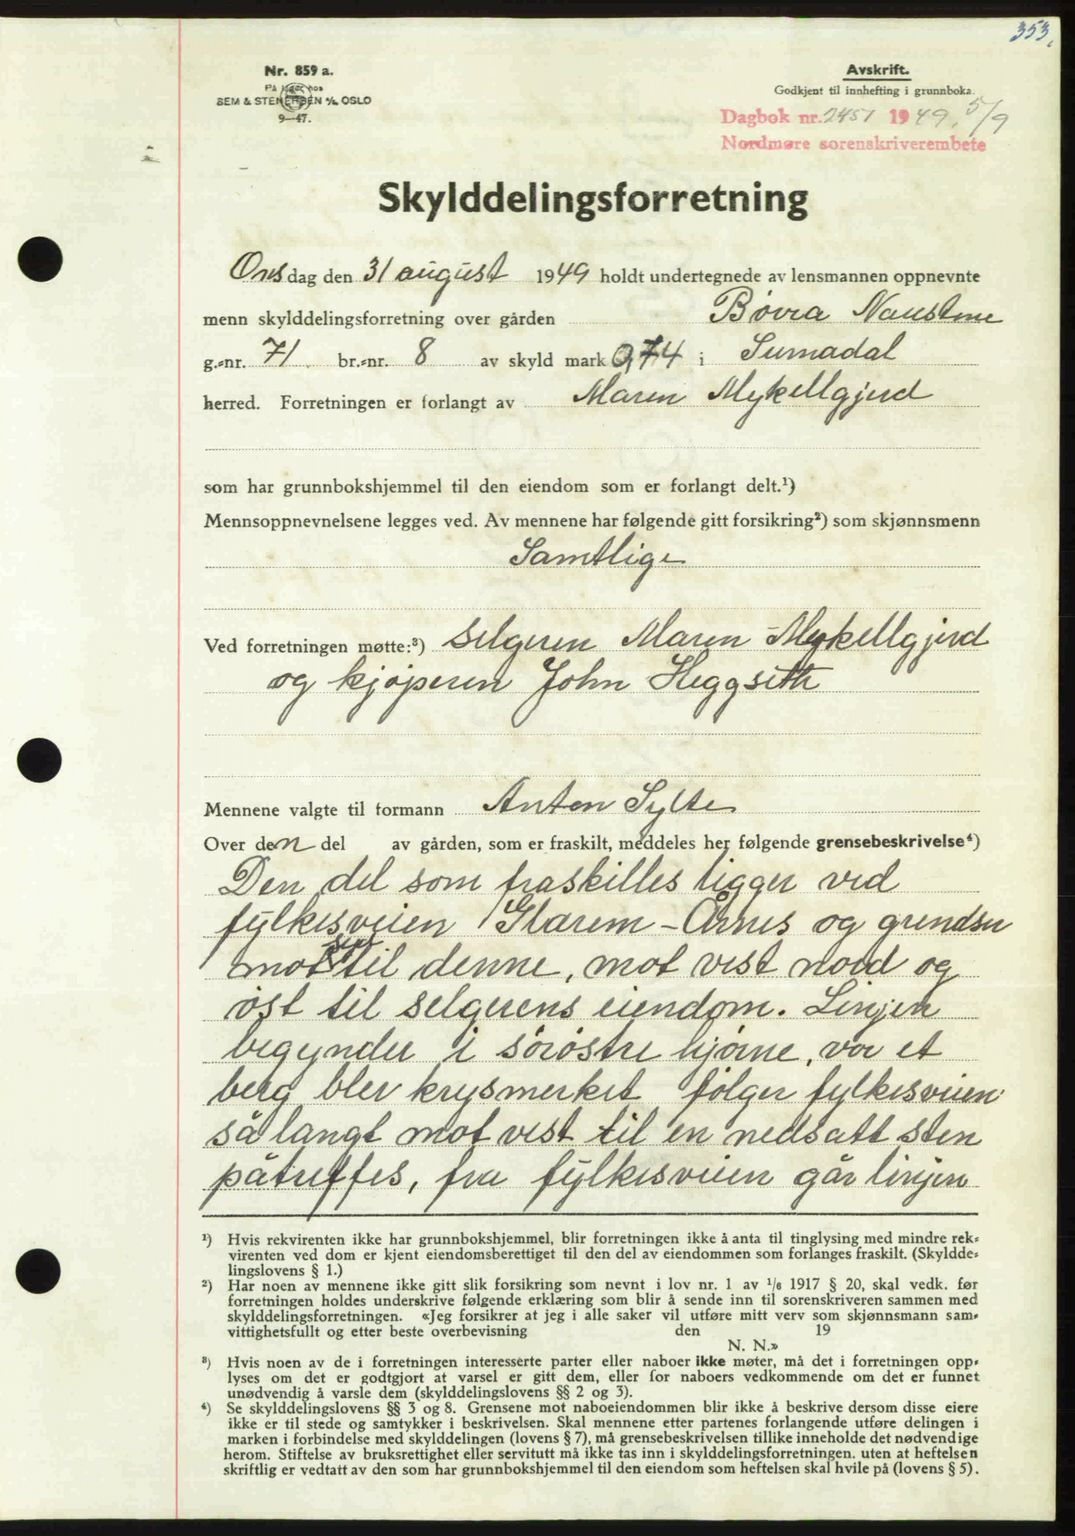 353.
Nr. 859 a.
På lager hos
SEM & STENERSEN A/S OSLO
9—47.
Avskrift.
Godkjent til innhefting i grunnboka.
Dagbok nr. 2457 1949. 5/9
Nordmøre sorenskriverembete
Skylddelingsforretning
Onsdag den 31 august 1949 holdt undertegnede av lensmannen oppnevnte
menn skylddelingsforretning over gården Bøvra Naustene
g.-nr. 71 br.-nr. 8 av skyld mark 0,74 i Surnadal
herred. Forretningen er forlangt av Maren Mykellgjerd
som har grunnbokshjemmel til den eiendom som er forlangt delt.¹)
Mennsoppnevnelsene legges ved. Av mennene har følgende gitt forsikring²) som skjønnsmenn
Samtlige
Ved forretningen møtte:³) selgeren Maren Mykellgjerd
og kjøperen John Heggseth
Mennene valgte til formann Anton Sylte
Over den del av gården, som er fraskilt, meddeles her følgende grensebeskrivelse⁴)
Den del som fraskilles ligger ved
fylkesveien Glærem - Årnes og grendser
mot syd til denne, mot vest nord og
øst til selgerens eiendom. Linjen
begynder i sörøstre hjørne, vor et
berg blev krysmerket følger fylkesveien
så langt mot vest til en nedsatt sten
påtreffes, fra fylkesveien går linjen
¹) Hvis rekvirenten ikke har grunnbokshjemmel, blir forretningen ikke å anta til tinglysing med mindre rek-
virenten ved dom er kjent eiendomsberettiget til den del av eiendommen som forlanges fraskilt. (Skyldde-
lingslovens § 1.)
²) Har noen av mennene ikke gitt slik forsikring som nevnt i lov nr. 1 av 1/6 1917 § 20, skal vedk. før
forretningen holdes underskrive følgende erklæring som blir å sende inn til sorenskriveren sammen med
skylddelingsforretningen. «Jeg forsikrer at jeg i alle saker vil utføre mitt verv som skjønnsmann sam-
vittighetsfullt og etter beste overbevisning den 19
N. N.»
³) Hvis noen av de i forretningen interesserte parter eller naboer ikke møter, må det i forretningen opp-
lyses om det er godtgjort at varsel er gitt dem, eller for naboers vedkommende om det er funnet
unødvendig å varsle dem (skylddelingslovens §§ 2 og 3).
⁴) Se skylddelingslovens §§ 3 og 8. Grensene mot naboeiendommen blir ikke å beskrive dersom disse eiere
ikke er til stede og samtykker i beskrivelsen. Skal mennene etter partenes forlangende utføre delingen i
marken i forbindelse med skylddelingen (lovens § 7), må grensebeskrivelsen tillike inneholde det nødvendige
herom. Stiftelse av bruksrettighet eller servitutt må ikke tas inn i skylddelingsforretningen, uten at heftelsen
skriftlig er vedtatt av den som har grunnbokshjemmel til den eiendom som heftelsen skal hvile på (lovens § 5).